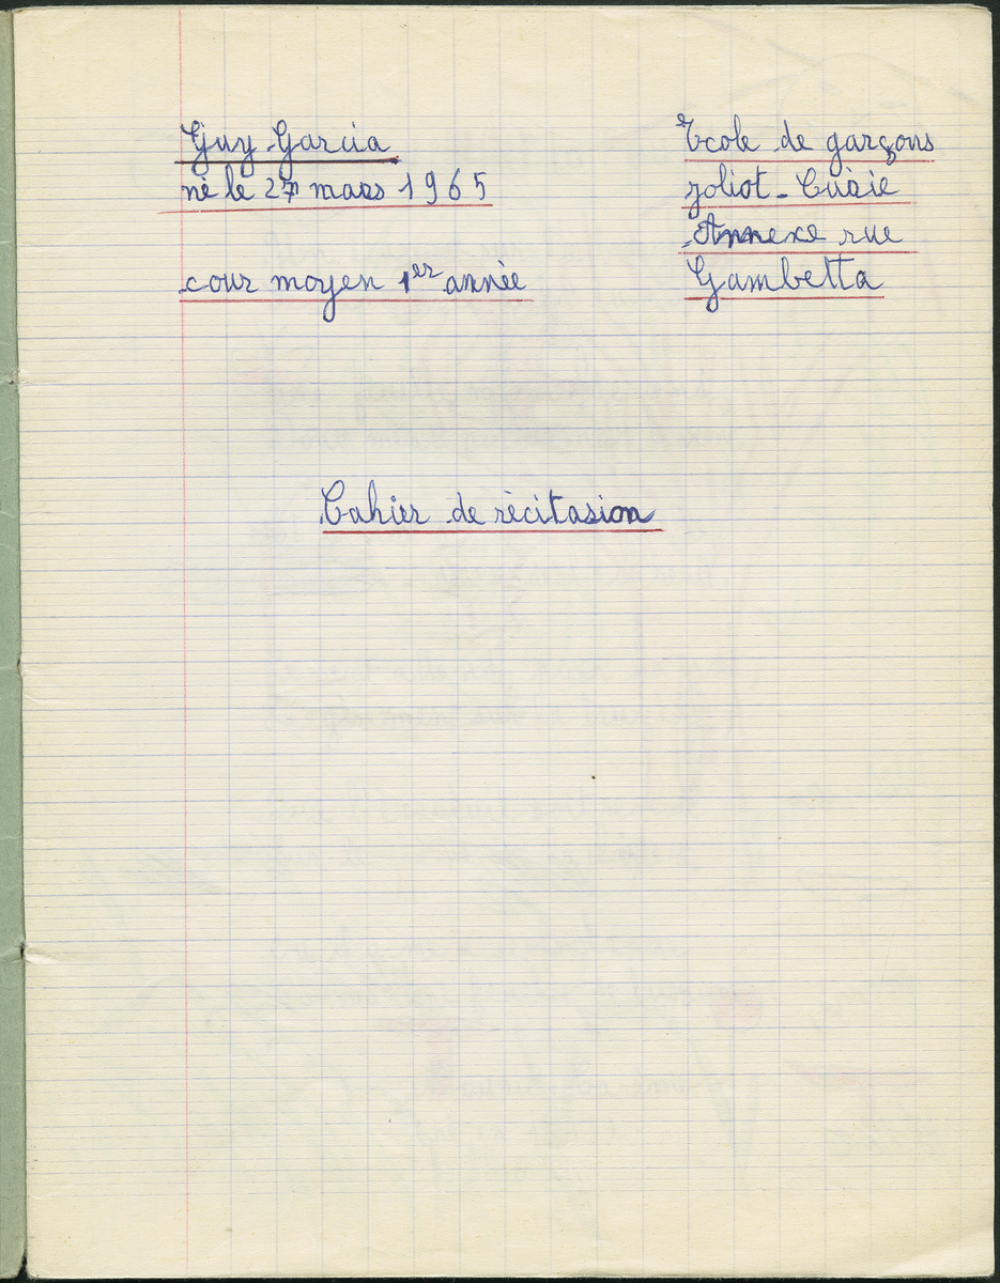 Guy Garcia
né le 27 mars 1965
cour moyen 1er année
Ecole de garçons
joliot-Curie
Annexe rue
Gambetta
Cahier de récitasion